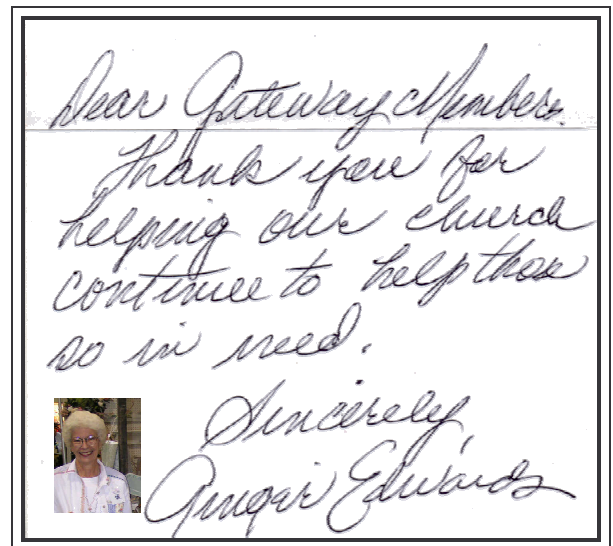 Dear Gateway Members,
Thank you for
helping our church
continue to help those
so in need.
Sincerely,
Ginger Edwards